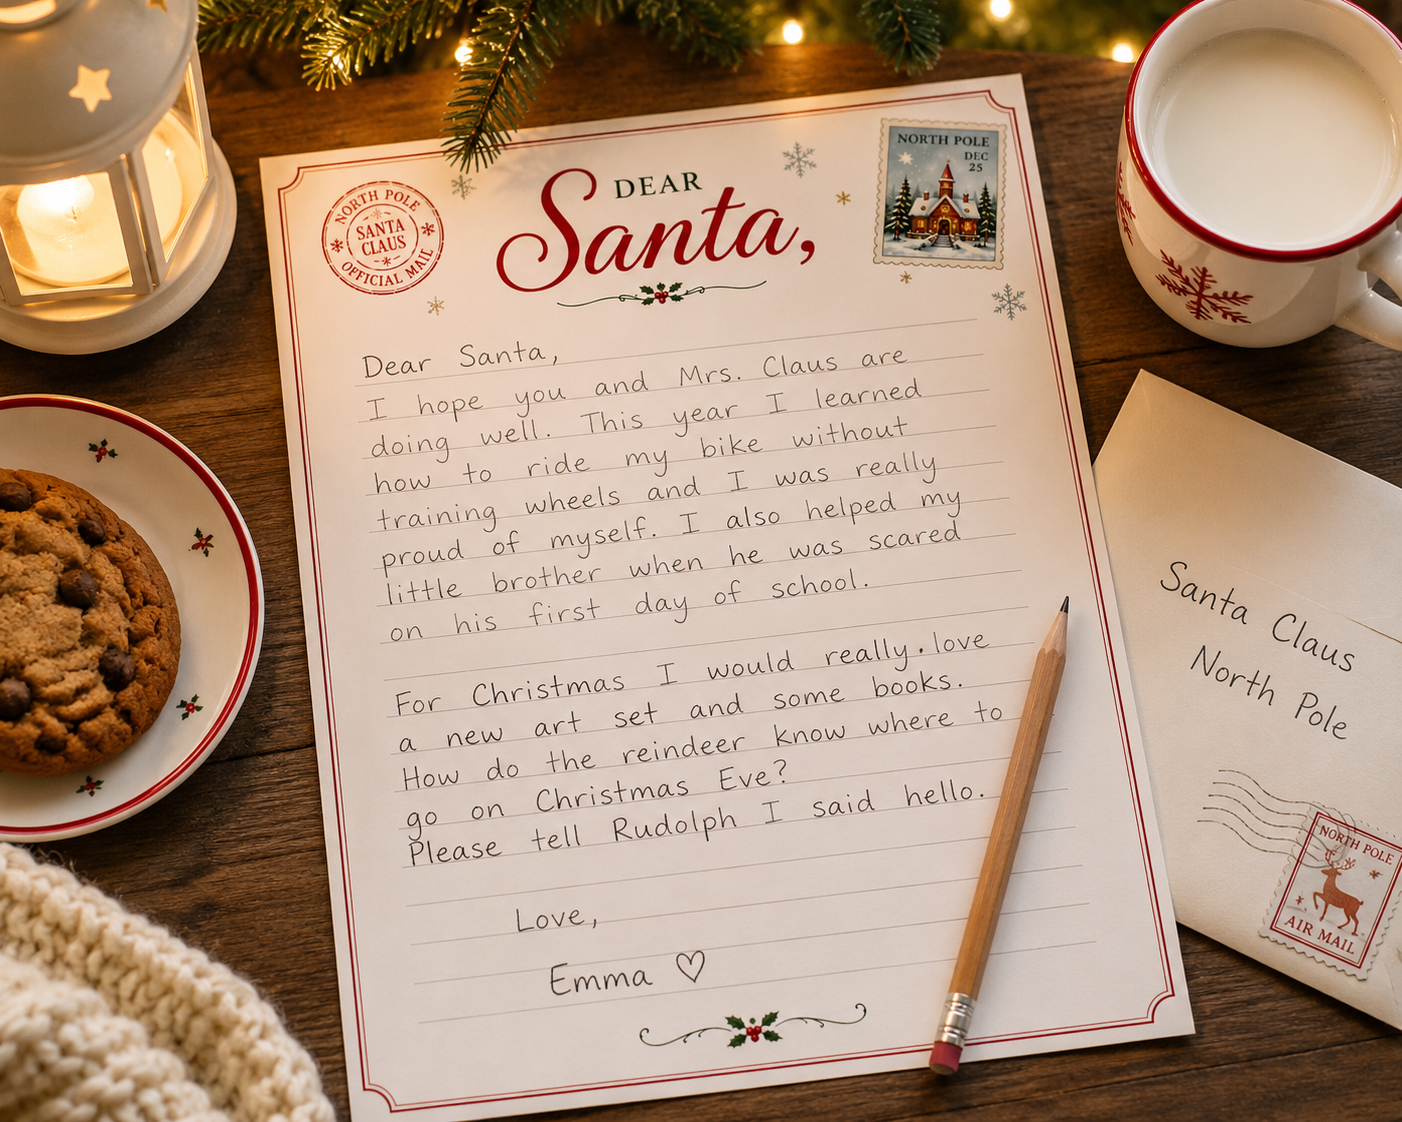 NORTH POLE
SANTA
CLAUS
OFFICIAL MAIL
DEAR
Santa,
NORTH POLE
DEC
25
Dear Santa,
I hope you and Mrs. Claus are
doing well. This year I learned
how to ride my bike without
training wheels and I was really
proud of myself. I also helped my
little brother when he was scared
on his first day of school.
For Christmas I would really.love
a new art set and some books.
How do the reindeer know where to
go on Christmas Eve?
Please tell Rudolph I said hello.
Love,
Emma ♡
Santa Claus
North Pole
NORTH POLE
AIR MAIL